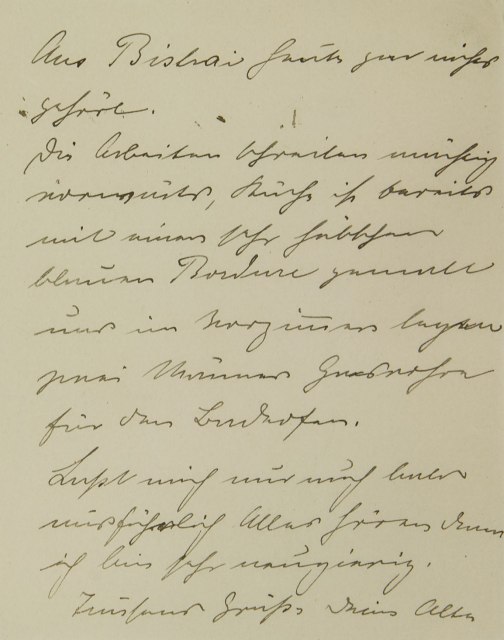 Aus Bistrai heute gar nichts
gehört.
Die Arbeiten schreiten mächtig
vorwärts, Küche ist bereits
mit einer sehr hübschen
blauen Bordure gemalt
und im Vorzimmer legten
zwei Männer Gasrohre
für den Badeofen.
Laßt mich nur auch bald
ausführlich Alles hören denn
ich bin sehr neugierig.
Tausend Grüße Deine Alte